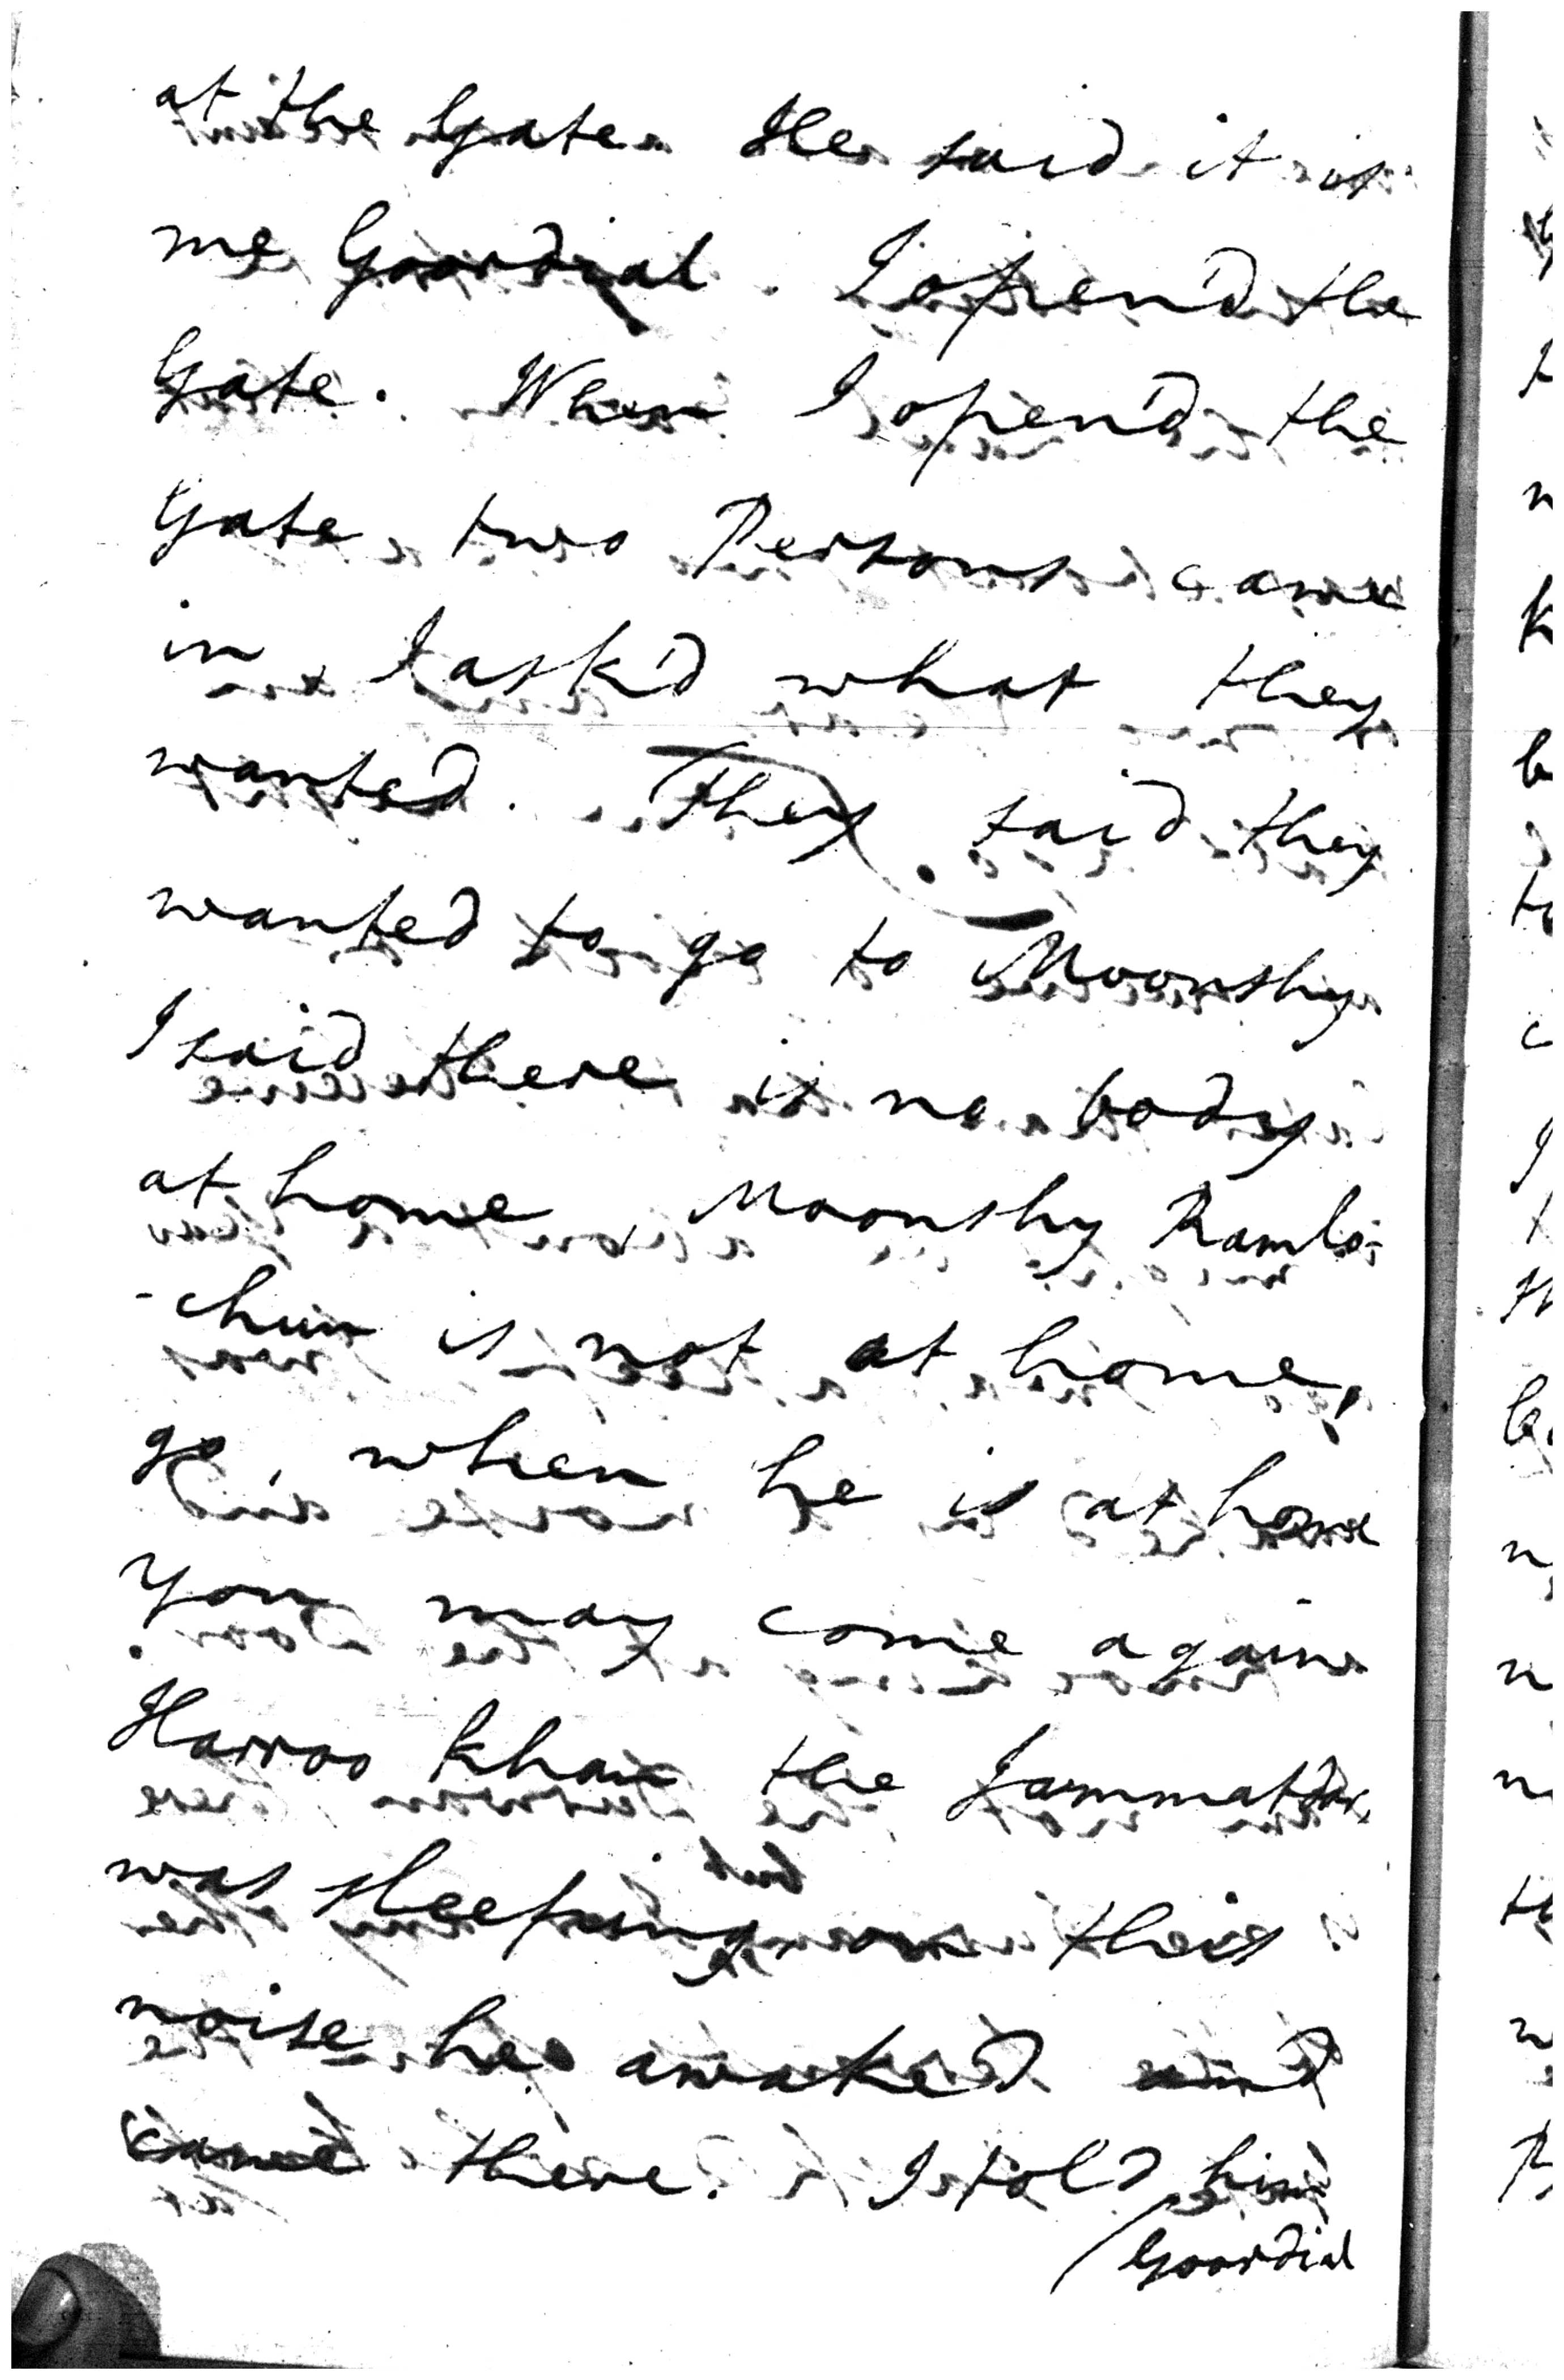 at the Gate. He said it is
me Goordial. I open'd the
Gate. When I open'd the
Gate, two Persons came
in, I ask'd what they
wanted. They said they
wanted to go to Moonshy
I said there is no body
at home, Moonshy Ramlo-
-chun is not at home,
go, when he is at home
you may come again
Harroo Khan the Jammatdar
was sleeping this
noise he awaked and
came there. I told him
Goordial